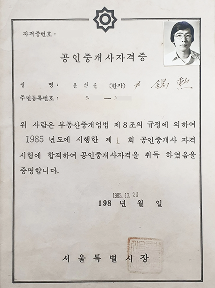 자격증번호:
공인중개사자격증
성 명 (한자)
주민등록번호: -
위 사람은 부동산중개업법 제8조의 규정에 의하여
1985 년도에 시행한 제 1 회 공인중개사 자격
시험에 합격하여 공인중개사자격을 취득 하였음을
증명합니다.
198 년 월 일
서울특별시장